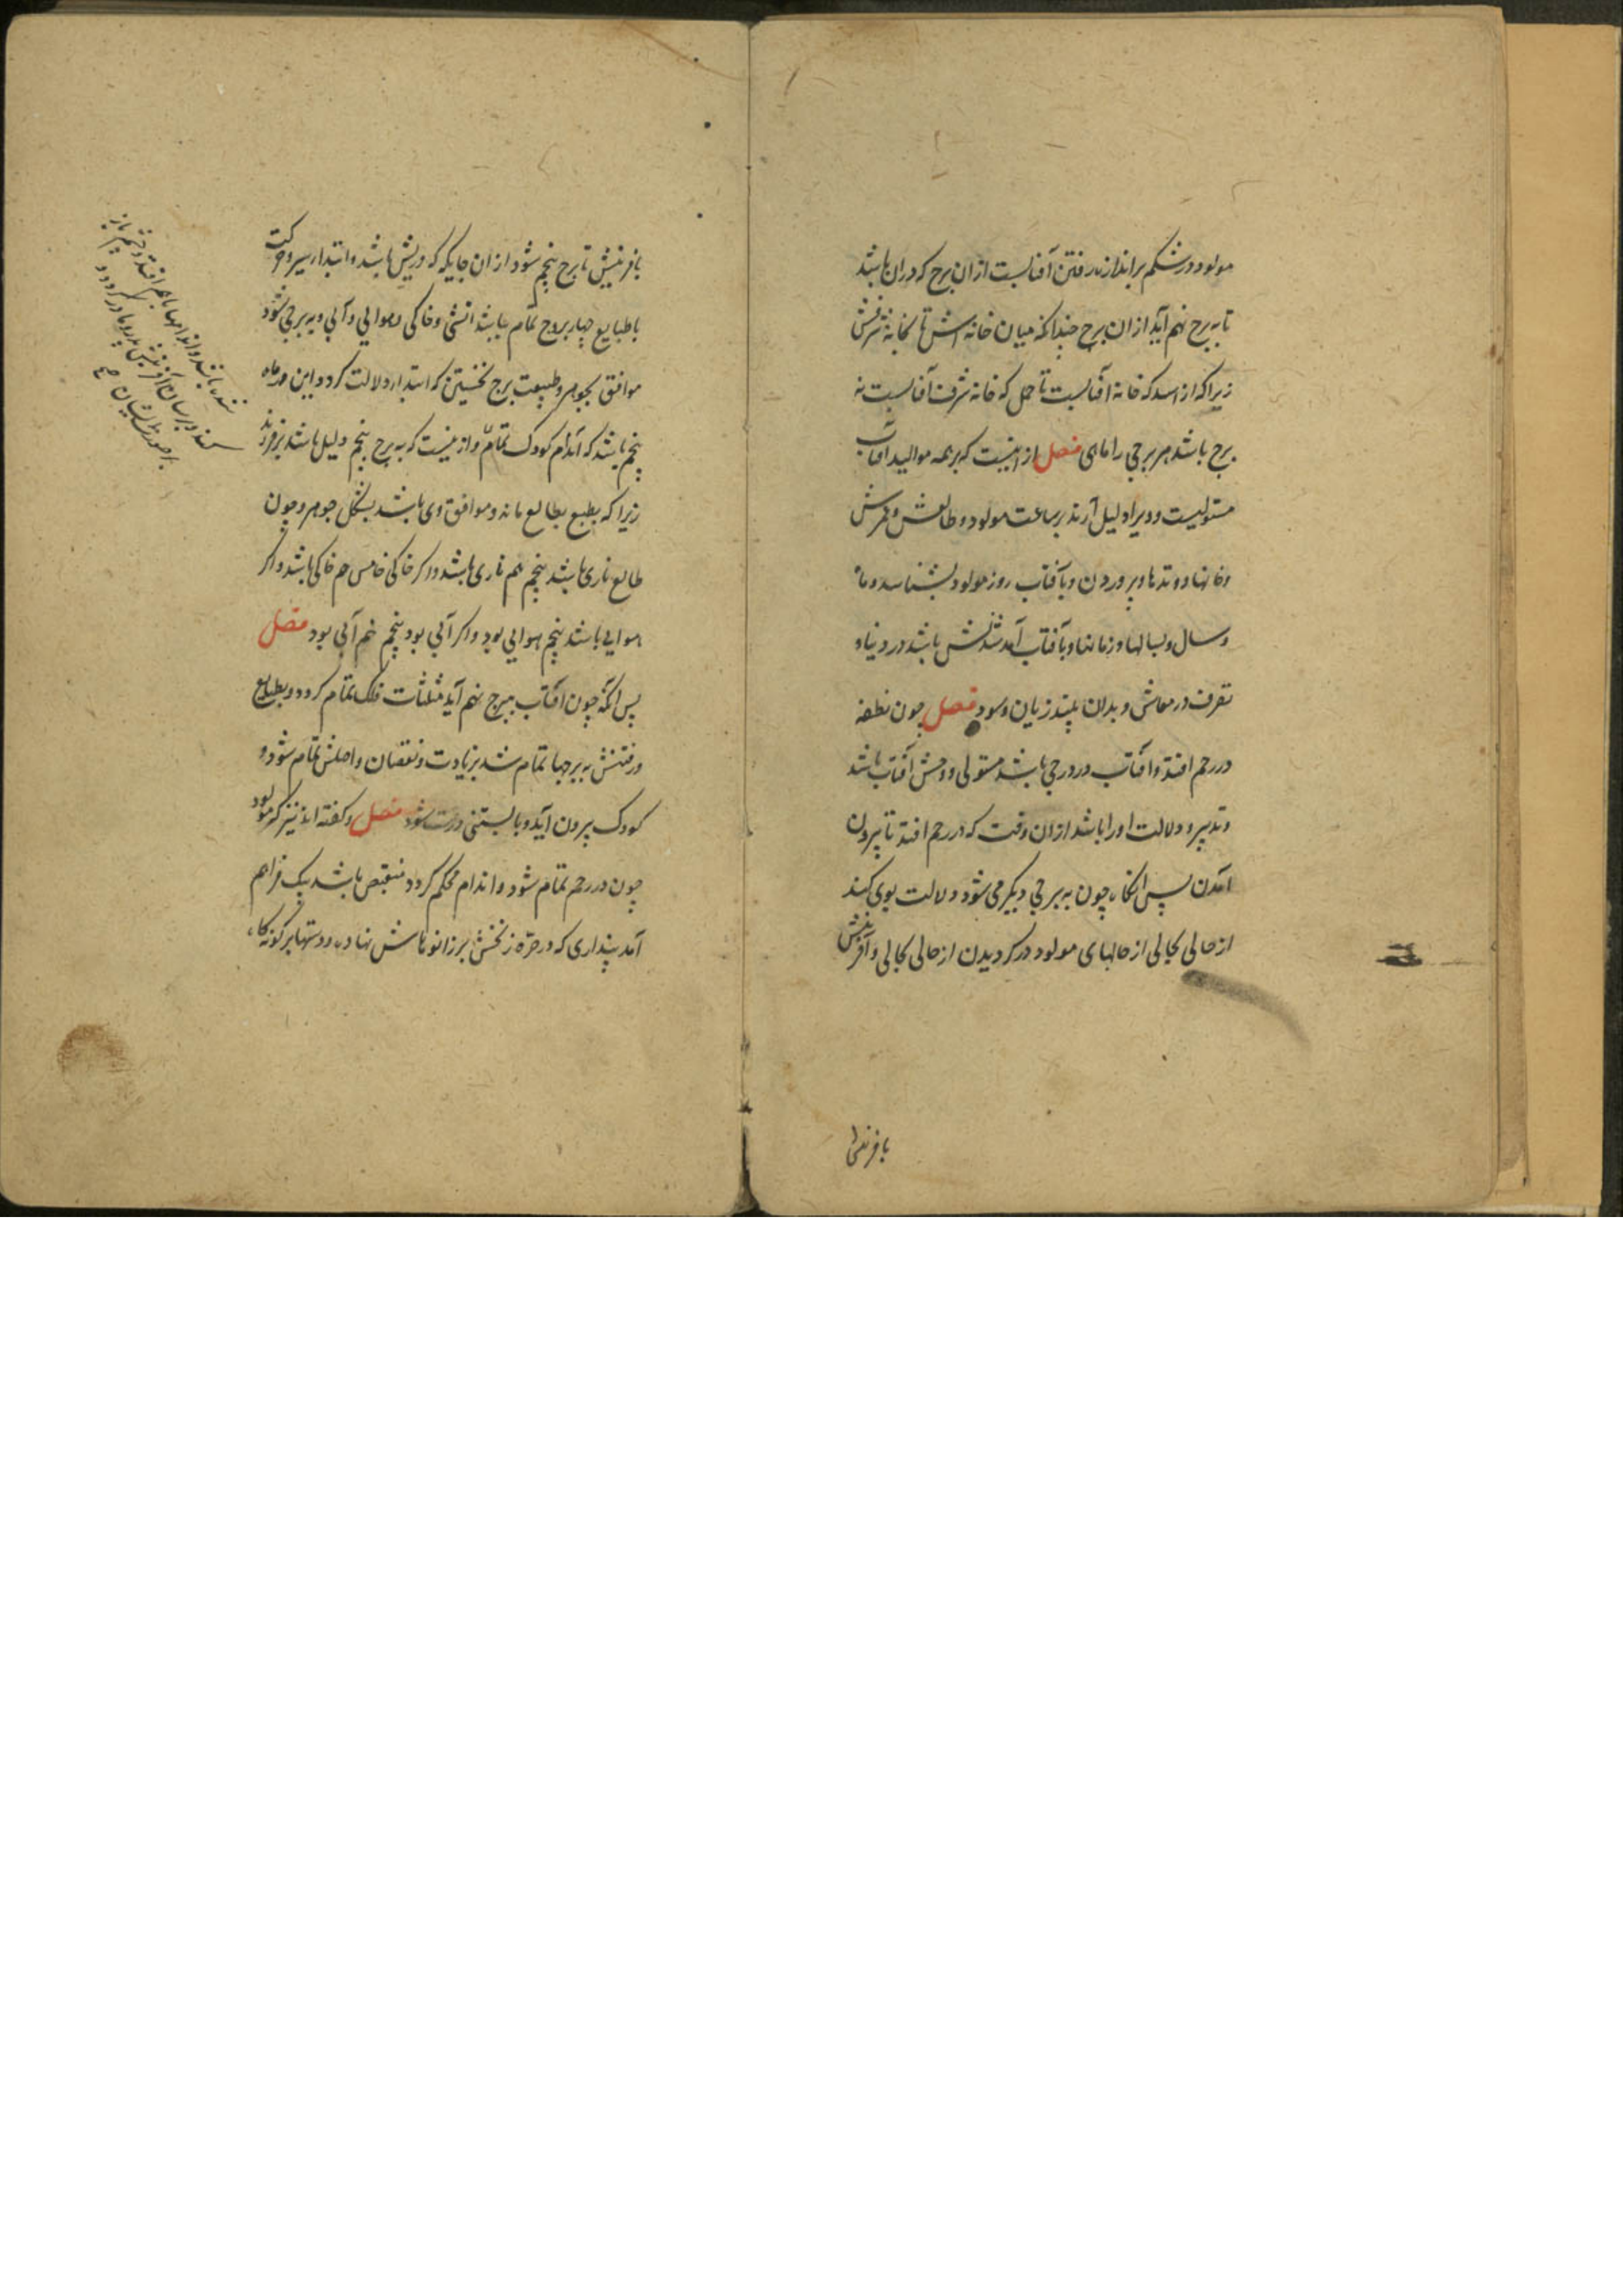 مولود در شکم بر اندازه رفتن آفتابست از ان برج که دران باشد
تا به برج نهم آید از ان برج چندانکه میان خانه اش تا بخانه شرفش
زیرا که از اسد که خانه آفتابست تا حمل که خانه شرف آفتابست نه
برج باشد هر برجی را ماهی فصل از اینست که بر همه موالید آفتاب
مستولیست و ویرا دلیل آرند بر ساعت مولود و طالعش و عمرش
وخانها و وتدها و پروردن و بآفتاب روز مولود بشناسد و ماه
وسال و بسالها و زمانها و بآفتاب آمد شدنش باشد در دنیا و
تصرف در معاش و بدان بیند زیان و سود فصل چون نطفه
در رحم افتد و آفتاب در درجی باشد مستولی و وحش آفتاب باشد
وتدبیر و دلالت او را باشد از ان وقت که در رحم افتد تا بیرون
آمدن پس آنگاه چون به برجی دیگر می شود دلالت بوی کند
از حالی بحالی از حالهای مولود در گردیدن از حالی بحالی و آفرینش
بافرینش
بافرینش تا برج پنجم شود از ان جایگه که دریش باشد و ابتدا سیر و حرکت
با طبایع چهار بروج تمام باشد آتشی و خاکی و هوایی و آبی و به برجی شود
موافق بجوهر و طبیعت برج نخستین که ابتدا دلالت کرد و این در ماه
پنجم باشد که اندام کودک تمام و از اینست که به برج پنجم دلیل باشد بر فرزند
زیرا که بطبع بطالع ماند و موافق وی باشد بشکل جوهر و چون
طالع ناری باشد پنجم هم ناری باشد و اگر خاکی خامس هم خاکی باشد و اگر
هوایی باشد پنجم هوایی بود و اگر آبی بود پنجم هم آبی بود فصل
پس آنگه چون آفتاب ببرج نهم آید مثلثات فلک تمام گردد و بطبایع
ورفتنش به برجها تمام شد بزیادت و نقصان و اصلش تمام شود و
کودک بیرون آید و بایستنی درست شود فصل و گفته اند نیز که مولود
چون در رحم تمام شود و اندام محکم گردد منقبض باشد یک فراهم
آمد پنداری که در صره زنخش بر زانوهاش نهاده و دستها بر گونه گاه
شده باشد و اندامها باهم افتد و چشم باز